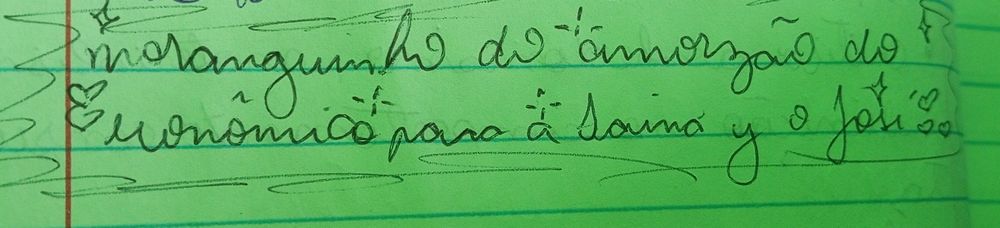 moranguinho do amorzão do
Econômico para a Sainá y o José